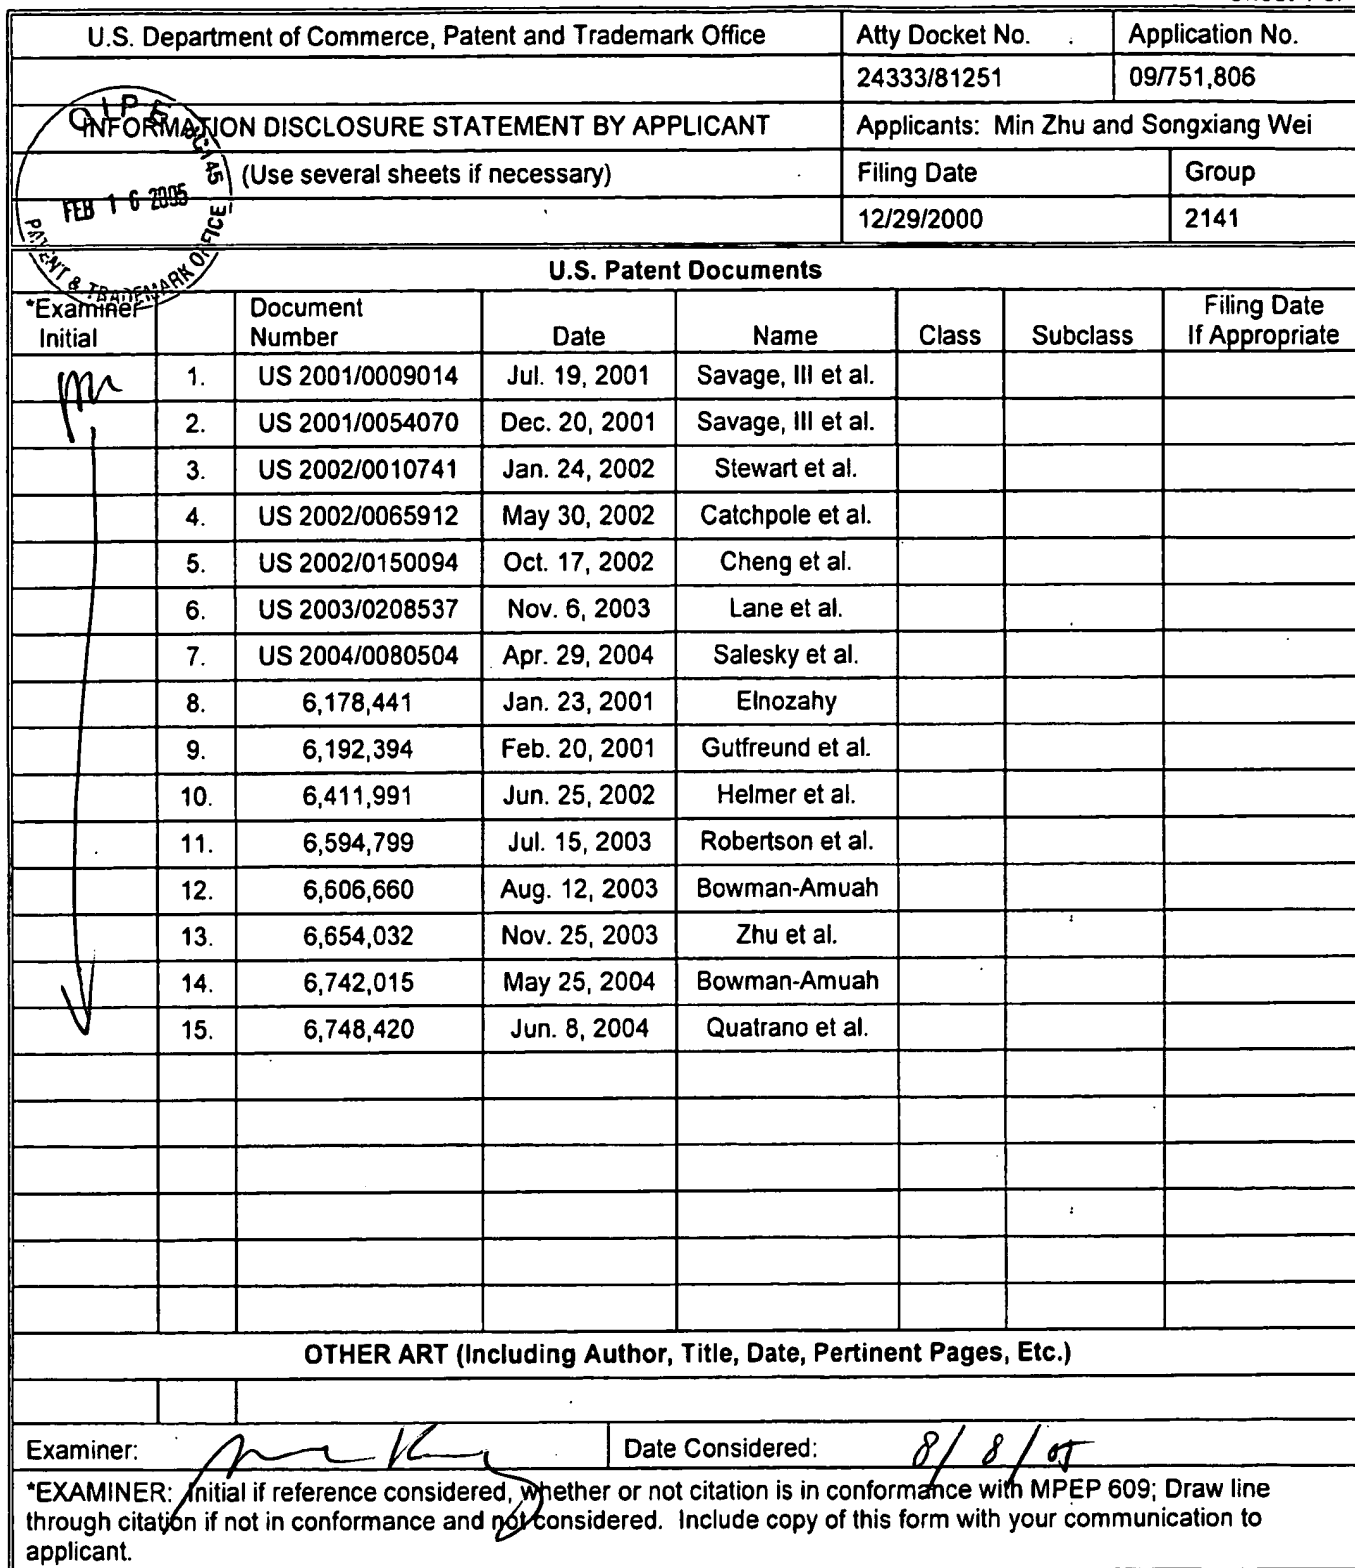 U.S. Department of Commerce, Patent and Trademark Office Atty Docket No. Application No.
24333/81251 09/751,806
INFORMATION DISCLOSURE STATEMENT BY APPLICANT Applicants: Min Zhu and Songxiang Wei
(Use several sheets if necessary) Filing Date Group
12/29/2000 2141
OIPE JC145
FEB 16 2005
PATENT & TRADEMARK OFFICE
U.S. Patent Documents
*Examiner Initial Document Number Date Name Class Subclass Filing Date If Appropriate
1. US 2001/0009014 Jul. 19, 2001 Savage, III et al.
2. US 2001/0054070 Dec. 20, 2001 Savage, III et al.
3. US 2002/0010741 Jan. 24, 2002 Stewart et al.
4. US 2002/0065912 May 30, 2002 Catchpole et al.
5. US 2002/0150094 Oct. 17, 2002 Cheng et al.
6. US 2003/0208537 Nov. 6, 2003 Lane et al.
7. US 2004/0080504 Apr. 29, 2004 Salesky et al.
8. 6,178,441 Jan. 23, 2001 Elnozahy
9. 6,192,394 Feb. 20, 2001 Gutfreund et al.
10. 6,411,991 Jun. 25, 2002 Helmer et al.
11. 6,594,799 Jul. 15, 2003 Robertson et al.
12. 6,606,660 Aug. 12, 2003 Bowman-Amuah
13. 6,654,032 Nov. 25, 2003 Zhu et al.
14. 6,742,015 May 25, 2004 Bowman-Amuah
15. 6,748,420 Jun. 8, 2004 Quatrano et al.
OTHER ART (Including Author, Title, Date, Pertinent Pages, Etc.)
Examiner: Date Considered: 8/8/05
*EXAMINER: Initial if reference considered, whether or not citation is in conformance with MPEP 609; Draw line
through citation if not in conformance and not considered. Include copy of this form with your communication to
applicant.